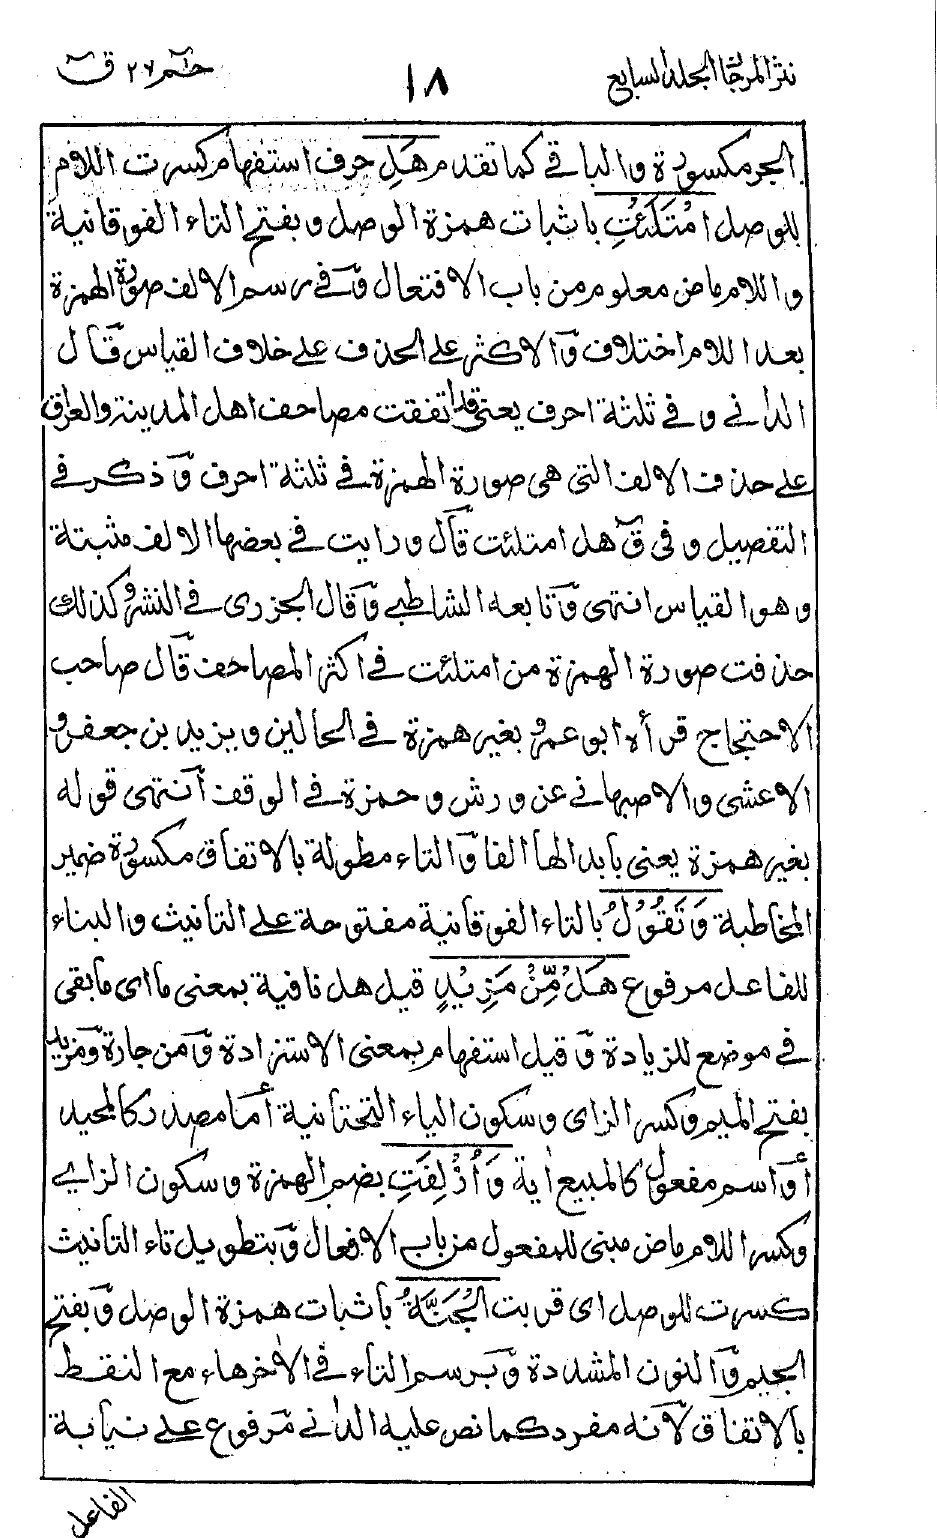 نثر المرجان المجلد السابع
١٨
حٰم ٢٦ ق
الجر مكسورة والباقي كما تقدم هَلِ حرف استفهام كسرت اللام
للوصل امْتَلَئْتِ باثبات همزة الوصل وبفتح التاء الفوقانية
واللام ماض معلوم من باب الافتعال وفي رسم الالف صورة الهمزة
بعد اللام اختلاف والاكثر على الحذف على خلاف القياس قال
الداني وفي ثلثة احرف يعني قد اتفقت مصاحف اهل المدينة والعراق
على حذف الالف التي هي صورة الهمزة في ثلثة احرف وذكر في
التفصيل وفي ق هل امتلئت قال ورايت في بعضها الالف مثبتة
وهو القياس انتهى وتابعه الشاطبي وقال الجزري في النشر وكذلك
حذفت صورة الهمزة من امتلئت في اكثر المصاحف قال صاحب
الاحتجاج قرأه ابو عمرو بغير همزة في الحالين ويزيد بن جعفر و
الاعشى والاصبهاني عن ورش وحمزة في الوقف انتهى قوله
بغير همزة يعني بابدالها الفا والتاء مطولة بالاتفاق مكسورة ضمير
المخاطبة وَتَقُوْلُ بالتاء الفوقانية مفتوحة على التانيث والبناء
للفاعل مرفوع هَلْ مِّنْ مَزِيْدٍ قيل هل نافية بمعنى ما اي ما بقي
في موضع للزيادة وقيل استفهام بمعنى الاستزادة ومن جارة ومزيد
بفتح الميم وكسر الزاي وسكون الياء التحتانية اما مصدر كالمحيد
او اسم مفعول كالمبيع اية وَأُزْلِفَتِ بضم الهمزة وسكون الزاي
وكسر اللام ماض مبني للمفعول من باب الافعال وبتطويل تاء التأنيث
كسرت للوصل اي قربت الْجَنَّةُ باثبات همزة الوصل وبفتح
الجيم والنون المشددة وبرسم التاء في الاخر هاء مع النقط
بالاتفاق لانه مفرد كما نص عليه الداني مرفوع على نيابة
الفاعل